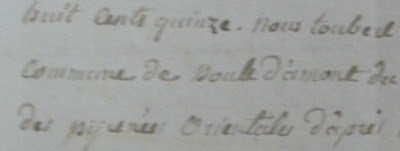 huit cents quinze. Nous toubert
commune de Boule d'amont du
des pyrenées Orientales d'âprés